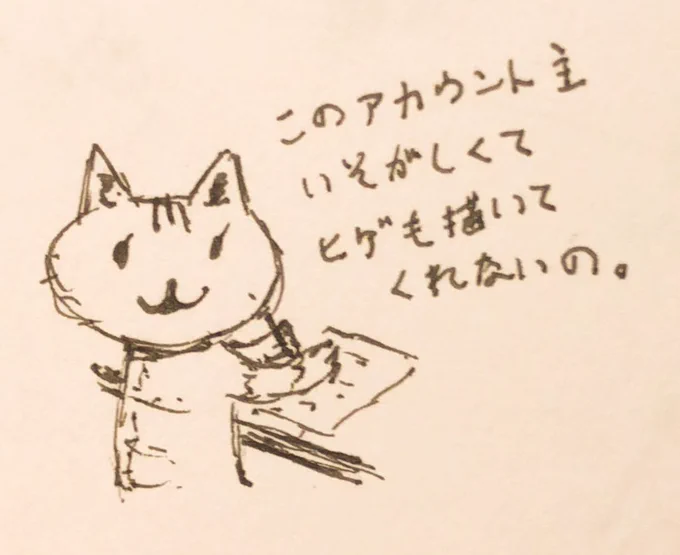 このアカウント主
いそがしくて
ヒゲも描いて
くれないの。